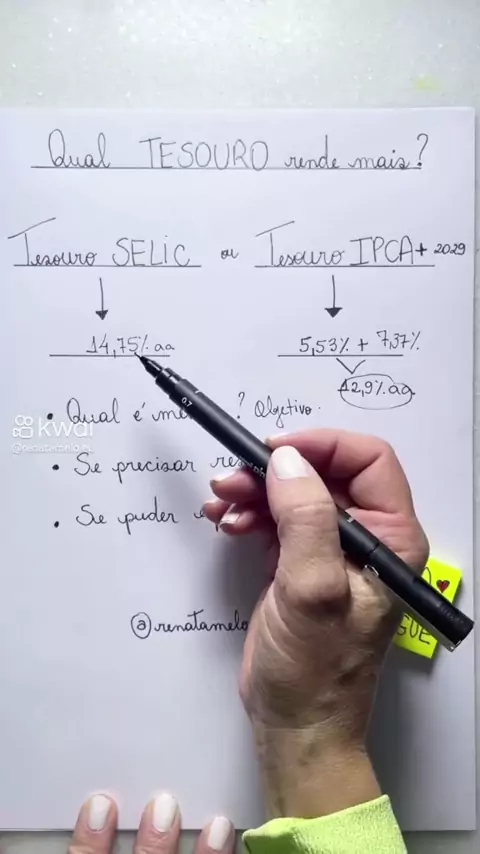 Qual TESOURO rende mais?
Tesouro SELIC ou Tesouro IPCA+ 2029
14,75% aa 5,53% + 7,37%
12,9% aa
• Qual é ? Objetivo.
kwai
• Se precisar
• Se puder
@renatamelo
GUE
0.7